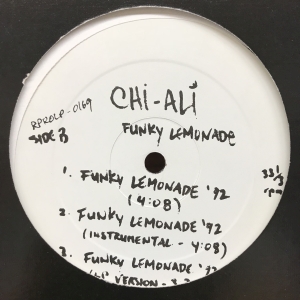 RPROLP-0169
CHI-ALI
SIDE B
FUNKY LEMONADE
33 1/3 rpm
1. FUNKY LEMONADE '92
(4:08)
2. FUNKY LEMONADE '92
(INSTRUMENTAL - 4:08)
3. FUNKY LEMONADE '92
VERSION -